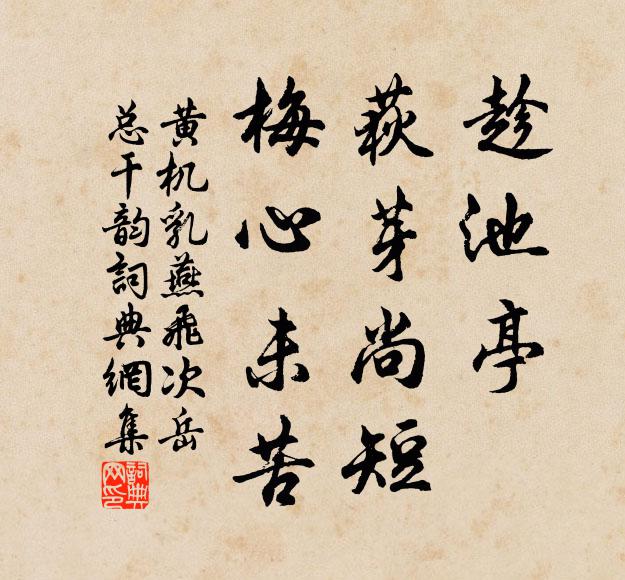 趁池亭
荻芽尚短
梅心未苦
黄机乳燕飛次岳
总干韵詞典網集
詞典
网印